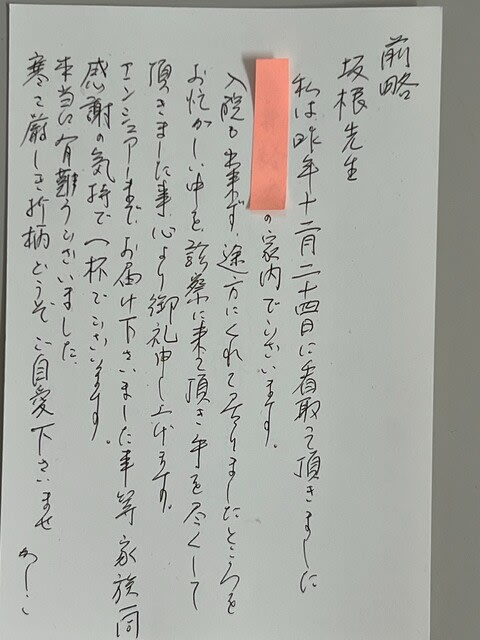 前略
坂根先生
私は昨年十二月二十四日に看取って頂きました
の家内でございます。
入院も出来ず、途方にくれて居りましたところを
お忙がしい中を、診察に来て頂き手を尽くして
頂きました事、心より御礼申し上げます。
エンシュアーまで、お届け下さいました事等家族一同
感謝の気持で一杯でございます。
本当に有難うございました。
寒さ厳しき折柄どうぞご自愛下さいませ
かしこ